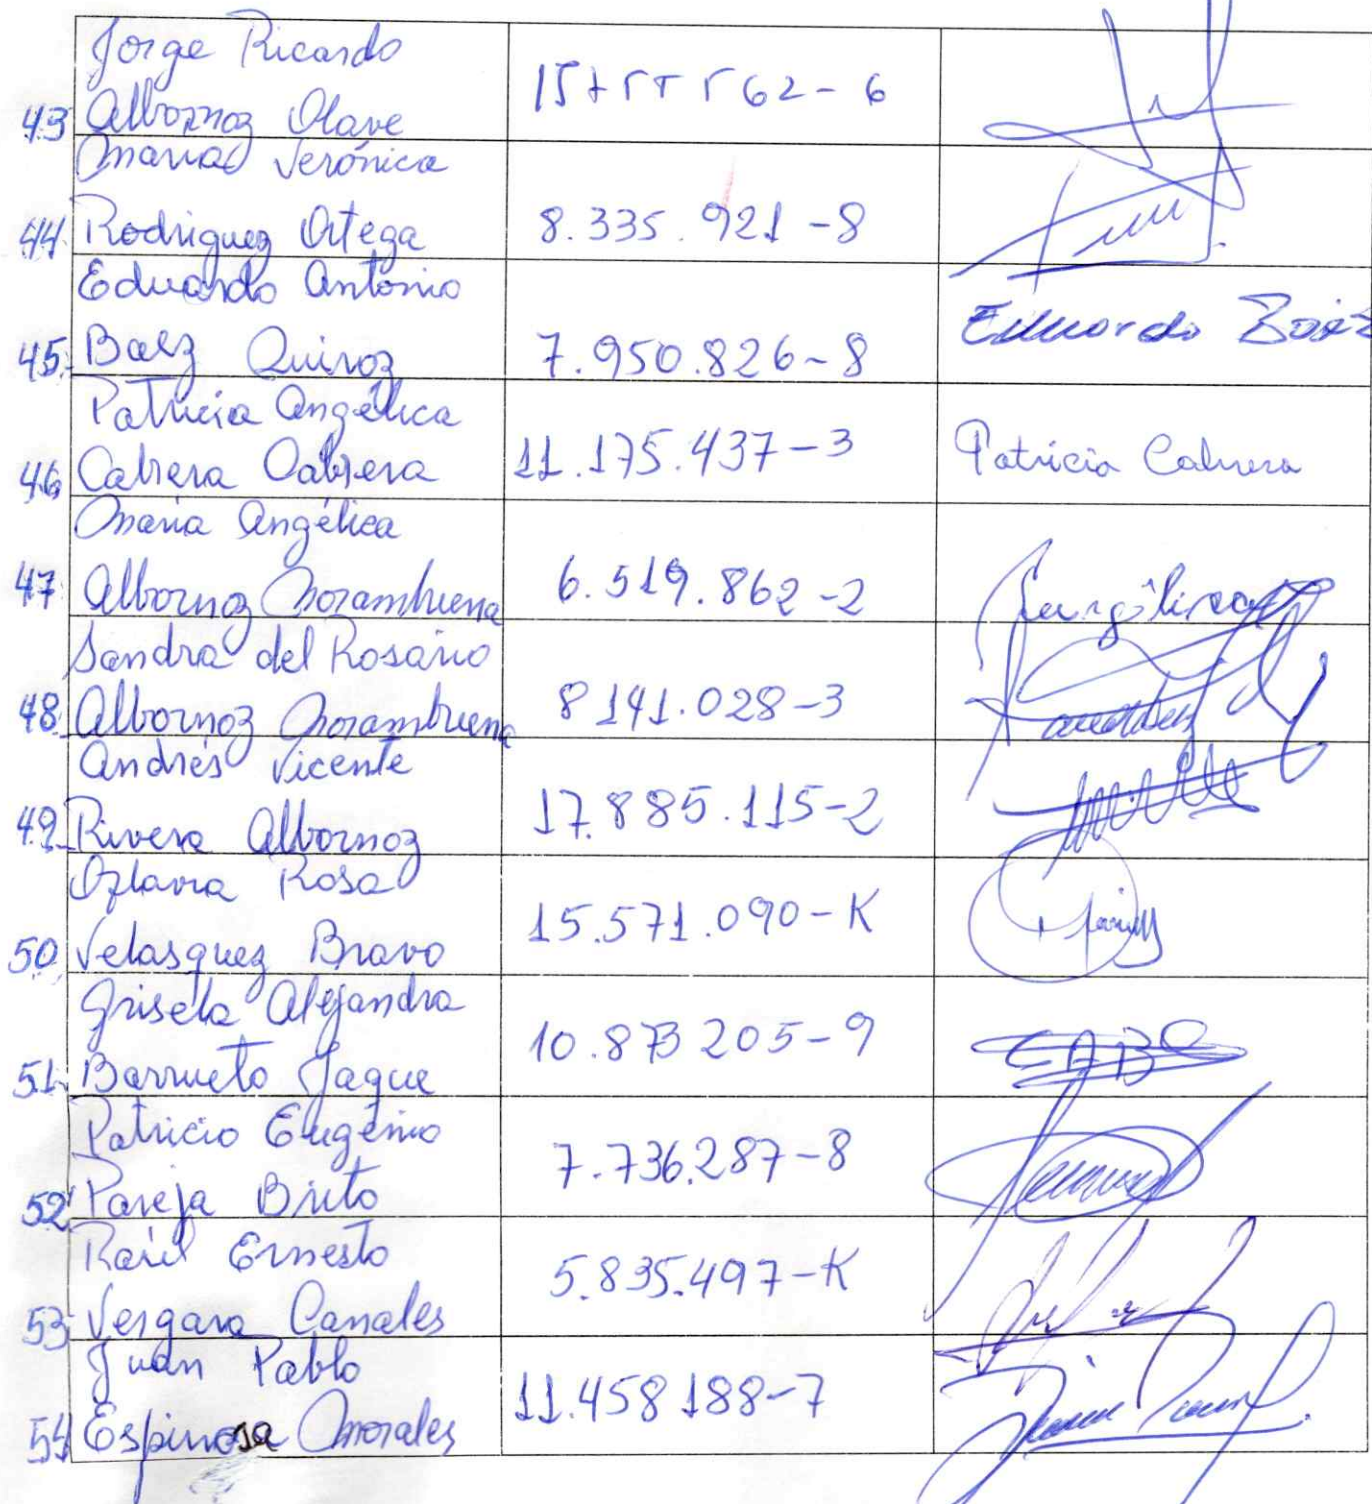 Jorge Ricardo
43 Albornoz Olave
Maria Verónica
44. Rodriguez Ortega 8.335.921-8
Eduardo Antonio
45. Baez Quiroz 7.950.826-8 Eduardo Baez
Patricia Angélica
46 Cabrera Cabrera 11.175.437-3 Patricia Cabrera
Maria Angélica
47. Albornoz Morambuena 6.519.862-2
Sandra del Rosario
48. Albornoz Morambuena 8141.028-3
Andrés Vicente
49. Rivera Albornoz 17.885.115-2
Oztavia Rosa
50. Velasquez Bravo 15.571.090-K
Grisela Alejandra
51. Barrueto Jaque 10.873205-9
Patricio Eugenio
52. Pareja Brito 7.736.287-8
Raúl Ernesto
53. Vergara Canales 5.835.497-K
Juan Pablo
54 Espinosa Morales 11.458188-7